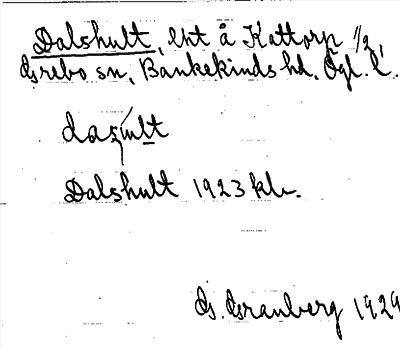 Dalshult, lht å Kattorp 1/2,
Grebo sn, Bankekinds hd. Ögl. l.
dasult
Dalshult 1923 kbr.
G. Granberg 1929